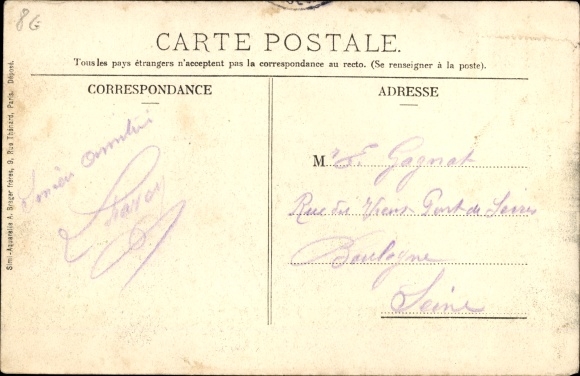 8G
CARTE POSTALE.
Tous les pays étrangers n'acceptent pas la correspondance au recto. (Se renseigner à la poste).
CORRESPONDANCE
ADRESSE
M r E. Gagnat
Rue du Vieux Pont de Sèvres
Boulogne
Seine
Simi-Aquarelle A. Breger frères, 9, Rue Thénard, Paris. Déposé.